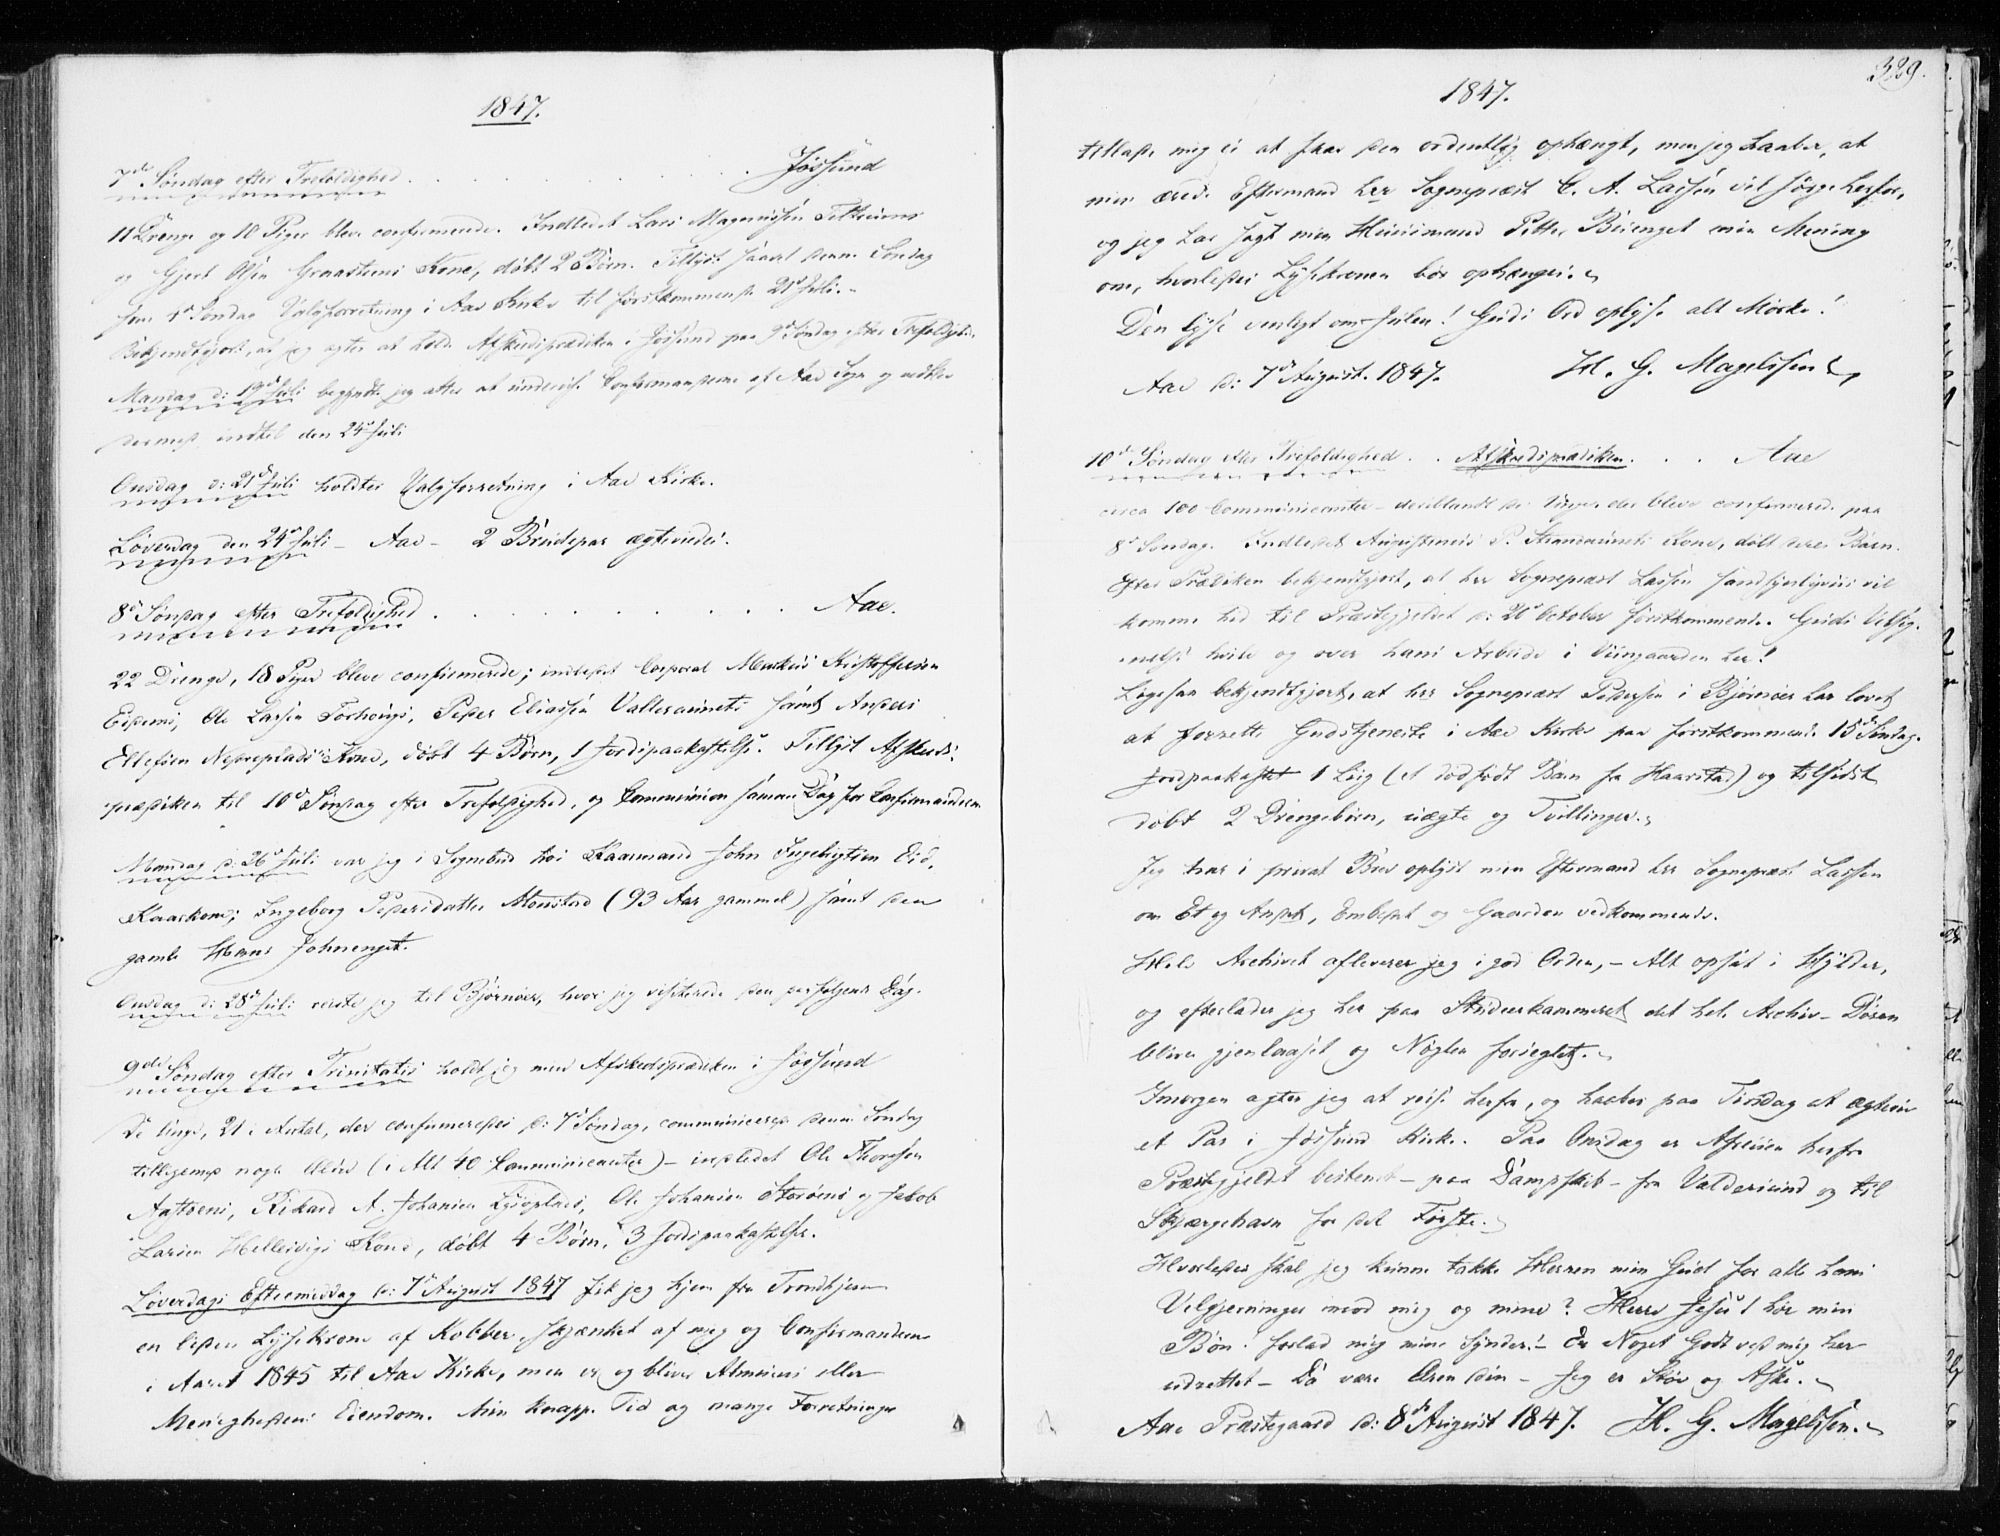 1847.
7de Søndag efter Trefoldighed . . . . . . . . Jøssund
11 Drenge og 10 Piger bleve confirmerede. Indledet Lars Magnussen
og Gjert Olsen Graasteens Kone, døbt 2 Børn. Tillyst saavel denne Søndag
som 4de Søndag Valgforretning i Aae Kirke til førstkommende 21de Juli.
Bekjendtgjort, at jeg agter at holde Afskedsprædiken i Jøssund paa 9de Søndag efter Trefoldighed.
Mandag d: 19de Juli begyndte jeg atter at undervise Confirmanderne af Aae Sogn og
dermed indtil den 24de Juli
Onsdag d: 21de Juli holdtes Valgforretning i Aae Kirke.
Løverdag den 24de Juli – Aae – 2 Brudepar ægteviede.
8de Søndag efter Trefoldighed . . . . . . . . Aae.
22 Drenge, 18 Piger bleve confirmerede; indledet Corporal Markus Kristoffersen
Ole Larsen Peder Eliassen Valleraunets samt Anders
Ellefsen Nedreplads's Kone, døbt 4 Børn, 1 Jordpaakastelse. Tillyst Afskeds-
prædiken til 10de Søndag efter Trefoldighed, og Communion samme Dag for Confirmanderne
Mandag d: 26de Juli var jeg i Sognebud hos Kaarmand John Ingebrigtsen Eid,
Kaarkone; Ingeborg Pedersdatter Monstad (93 Aar gammel) samt den
gamle Hans Johnenget.
Onsdag d: 28de Juli reiste jeg til Bjørnør, hvor jeg visiterede den paafølgende Dag.
9de Søndag efter Trinitatis holdt jeg min Afskedsprædiken i Jøssund
De Unge, 21 i Antal, der confirmeredes d: 7de Søndag, communicerede denne Søndag
tilligemed nogle Andre (i Alt 40 Communicanter) – indledet Ole Thoresen
Rikard A. Johansen Lysøplads, Ole Johansen Storøens og Jakob
Larsen Hellesvigs Kone, døbt 4 Børn, 3 Jordpaakastelser.
Løverdags Eftermiddag d: 7de August 1847 fik jeg hjem fra Trondhjem
en liden Lysekrone af Kobber, skjænket af mig og Confirmanderne
i Aaret 1845 til Aae Kirke, men er og bliver Almuens eller
Menighedens Eiendom. Min knappe Tid og mange Forretninger
329.
1847.
tillade mig ei at faae den ordentlig ophængt, men jeg haaber, at
min ærede Eftermand her Sognepræst C. A. Lassen vil sørge herfor,
og jeg har sagt min Huusmand Petter Buenget min Mening
om, hvorledes Lysekronen bør ophænges.
Den lyse venligt om Julen! Guds Ord oplyse alt Mørke!
Aae d: 7de August. 1847. H. G. Magelssen
10de Søndag efter Trefoldighed . . Afskedsprædiken . . . Aae
circa 100 Communicanter – deriblandt de Unge, der bleve confirmerede paa
8de Søndag. Indledet Augustinus P. Strandaunets Kone, døbt deres Barn.
Efter Prædiken bekjendtgjort, at her Sognepræst Lassen sandsynligviis vil
komme hid til Præstegjeldet d: 20de October førstkommende. Guds Velsig-
nelse hvile og over hans Arbeide i Viingaarden her!
Ligesaa bekjendtgjort, at her Sognepræst Pedersen i Bjørnør har lovet
at forrette Gudstjeneste i Aae Kirke paa førstkommende 15de Søndag.
Jordpaakastet 1 Liig (et dødfødt Barn fra Haarstad) og tilsidst
døbt 2 Drengebørn, uægte og Tvillinger.
Jeg har i privat Brev oplyst min Eftermand her Sognepræst Lassen
om Et og Andet, Embedet og Gaarden vedkommende.
Hele Archivet afleverer jeg i god Orden, – Alt opsat i Hylder,
og efterlader jeg her paa Studerekammeret det hele Archiv – Døren
bliver gjenlaaset og Nøglen forseglet.
Imorgen agter jeg at reise herfra, og haaber paa Tirsdag at ægtevie
et Par i Jøssund Kirke. Paa Onsdag er Afreisen herfra
Præstegjeldet bestemt – paa Dampskib – fra Valdersund og til
Skjærgehavn for det Første.
Hvorledes skal jeg kunne takke Herren min Gud for alle hans
Velgjerninger imod mig og mine? Herre Jesu! hør min
Bøn! forlad mig mine Synder! – Er Noget Godt ved mig her
udrettet – Da være Æren din – Jeg er Støv og Aske.
Aae Præstegaard d: 8de August 1847. H. G. Magelssen.